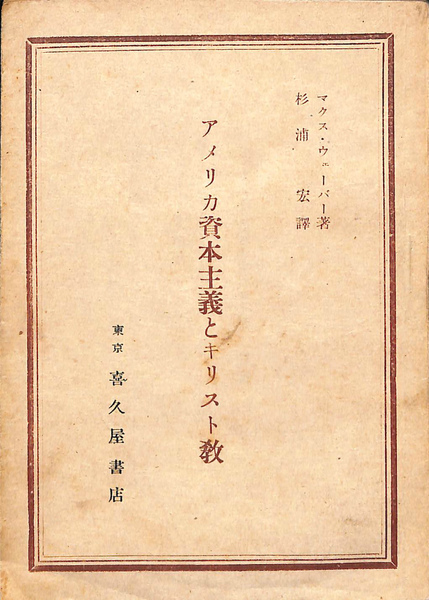 マクス・ウェーバー著
杉浦宏譯
アメリカ資本主義とキリスト教
東京 喜久屋書店